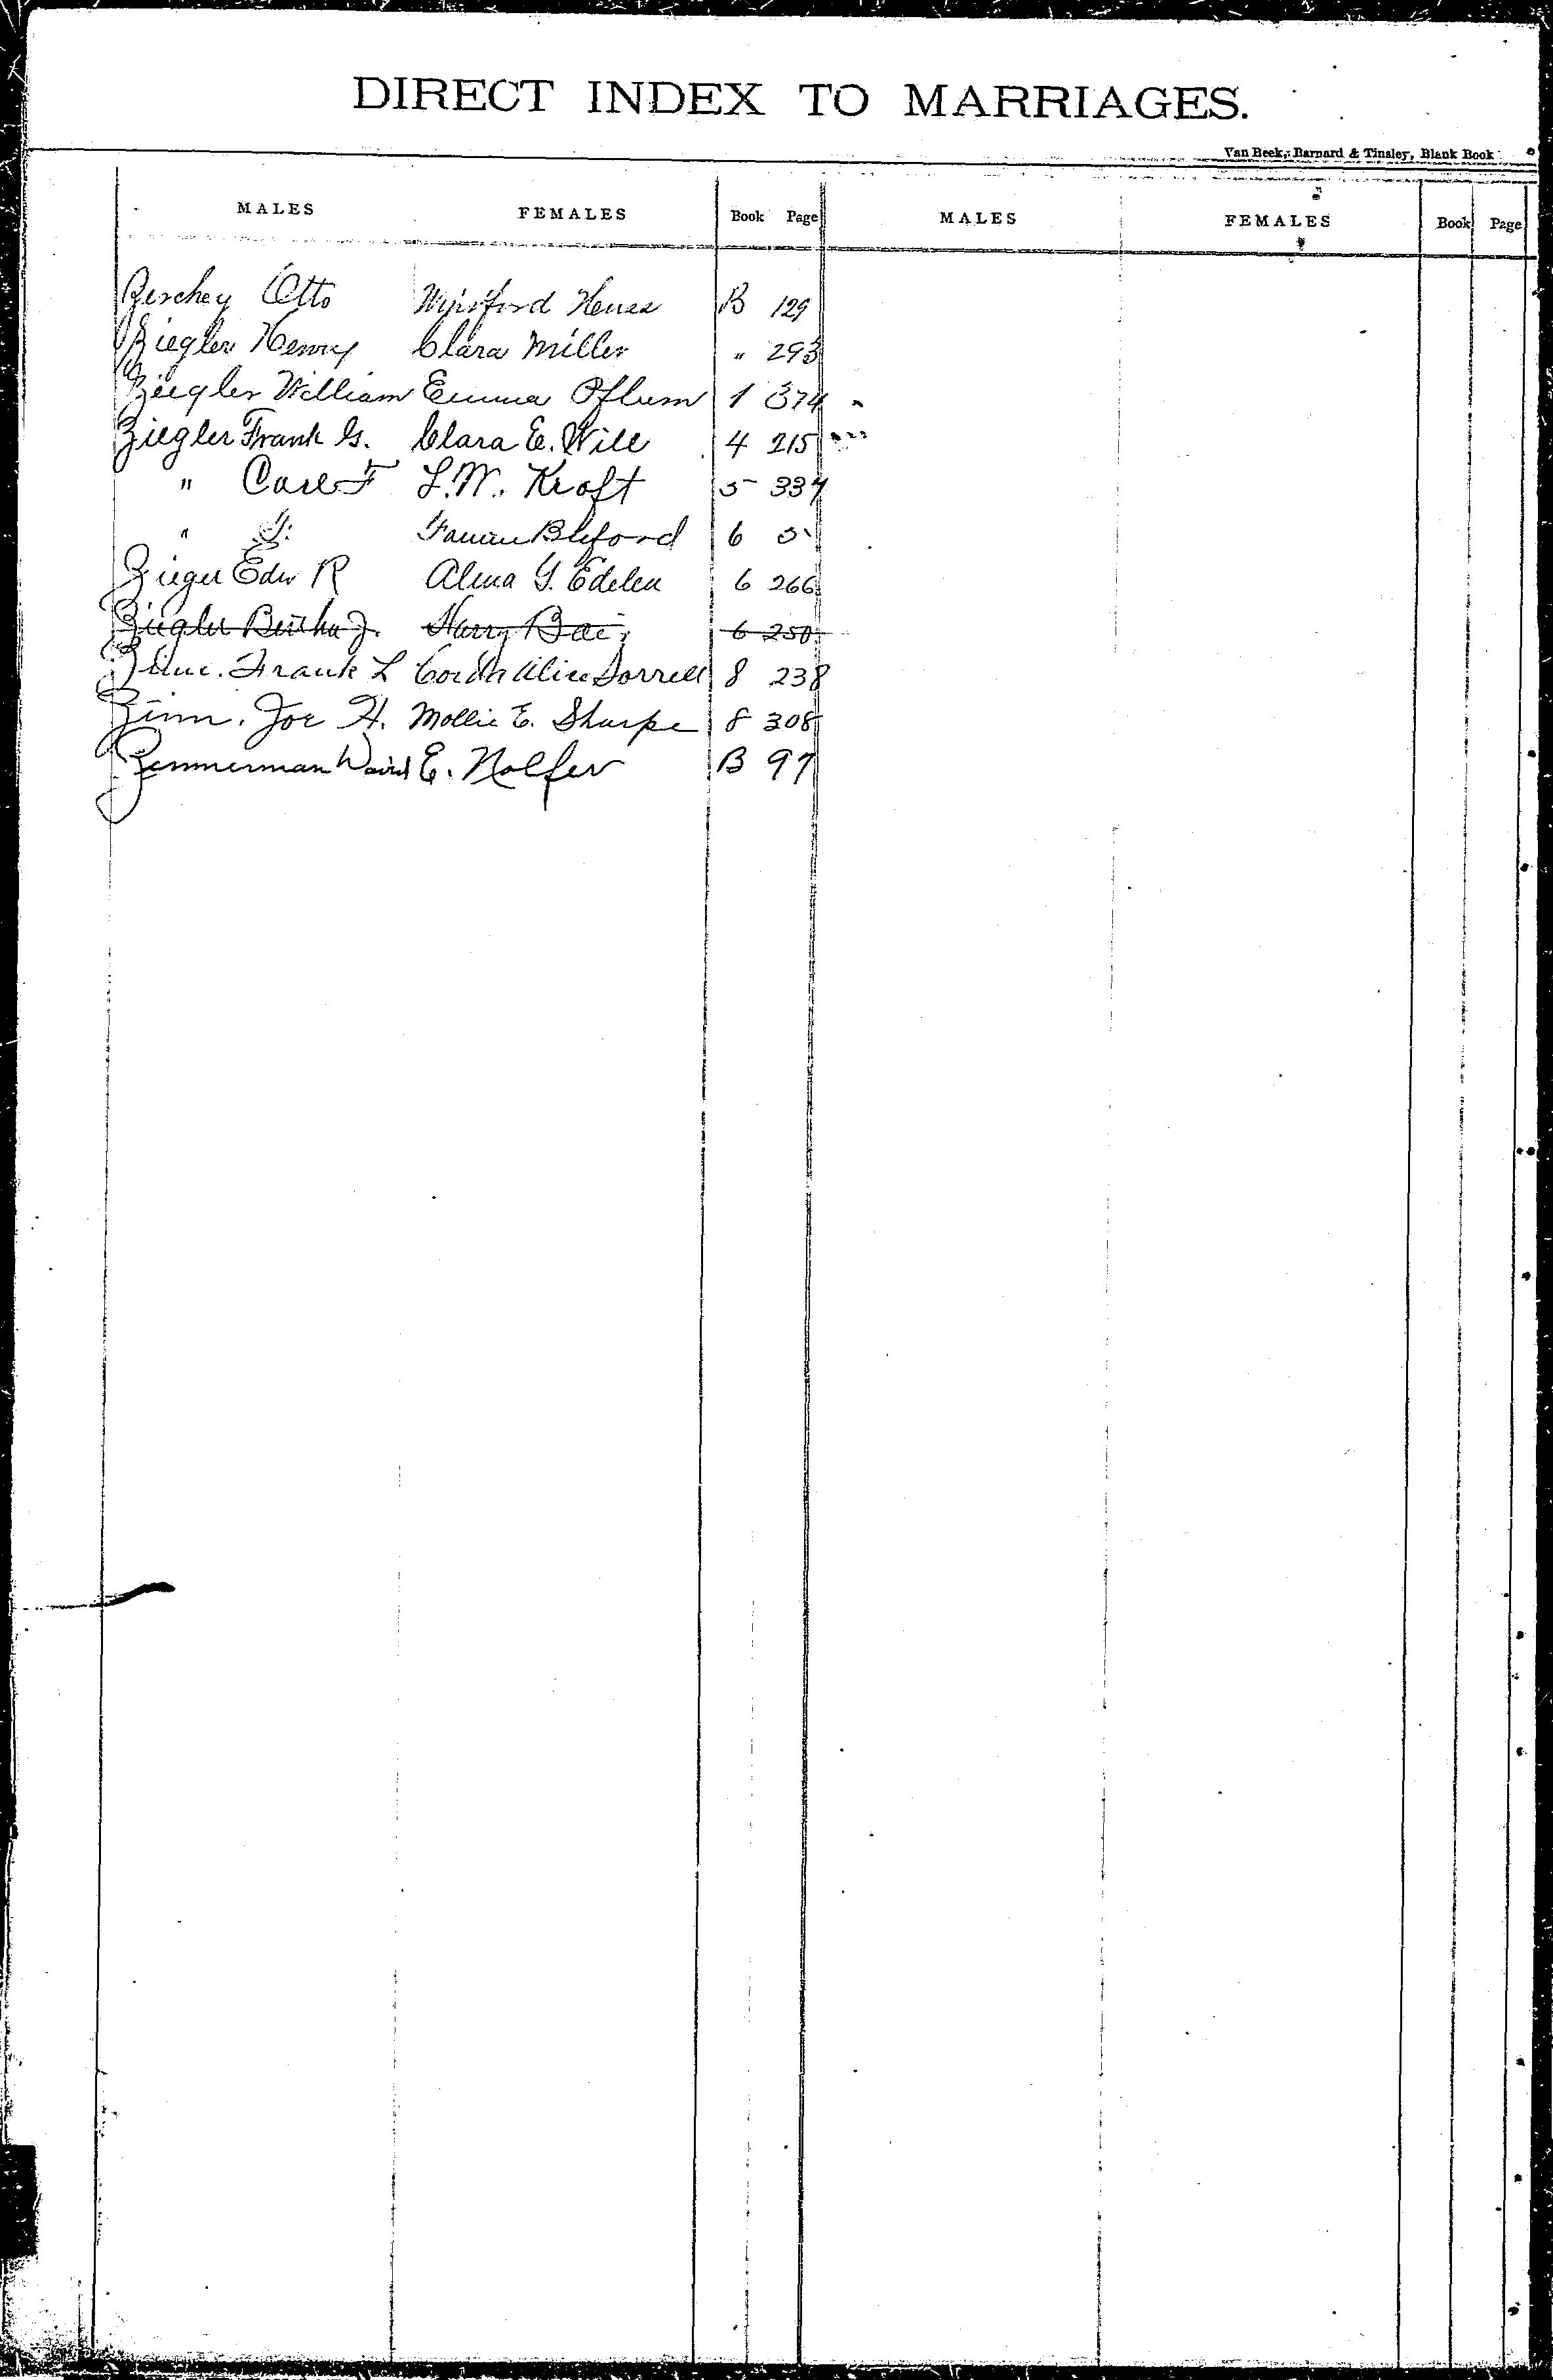 DIRECT INDEX TO MARRIAGES.
Van Beek, Barnard & Tinsley, Blank Book
MALES FEMALES Book Page MALES FEMALES Book Page
Zerchey Otto B 129
Ziegler Henry Clara Miller " 293
Ziegler William Emma Pflum 1 374
Ziegler Frank G. Clara E. Will 4 215
" Carl F L.W. Kroft 5 337
" 6 5
Zieger Edw R Alma G. Edelen 6 266
Ziegler Bertha J. Harry 6 250
Frank L Alice Sorrell 8 238
Zinn. Joe H. Mollie E. Sharpe 8 308
Zimmerman David E. Nolfer B 97